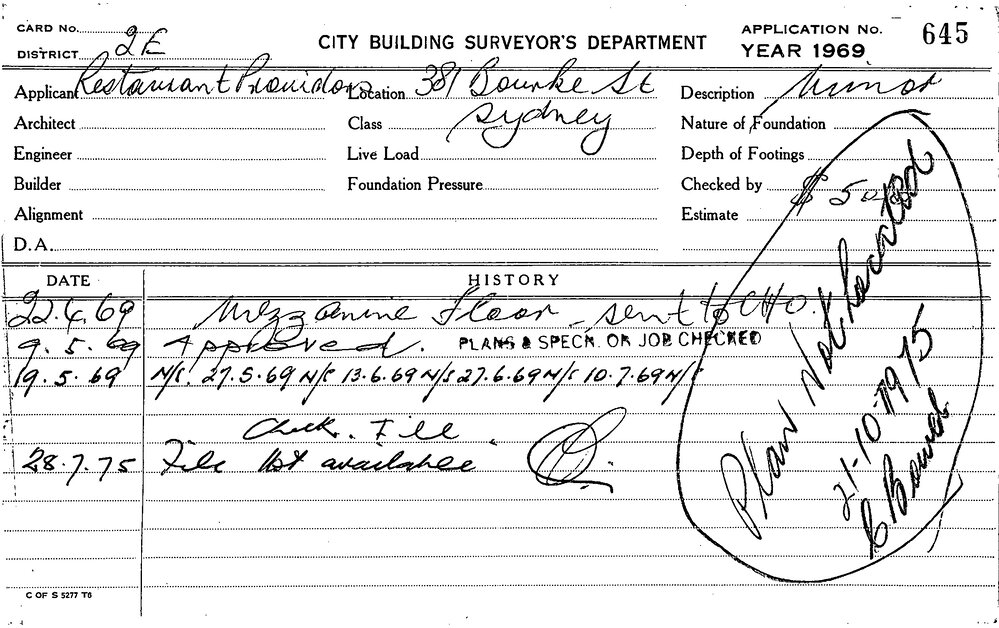 CARD No.
APPLICATION No. 645
DISTRICT 2E
CITY BUILDING SURVEYOR'S DEPARTMENT
YEAR 1969
Applicant Restaurant Providors Location 381 Bourke St Description Minor
Architect Class Sydney Nature of Foundation
Engineer Live Load Depth of Footings
Builder Foundation Pressure Checked by
Alignment Estimate
D.A.
DATE HISTORY
22.4.69 Mezzanine Floor - sent to CHO.
9.5.69 Approved. PLANS & SPECN. OK JOB CHECKED
19.5.69 N/S. 27.5.69 N/S 13.6.69 N/S 27.6.69 N/S 10.7.69 N/S
Check. File
28.7.75 File not available
Plan Not Located
21-10-1975
C OF S 5277 T6